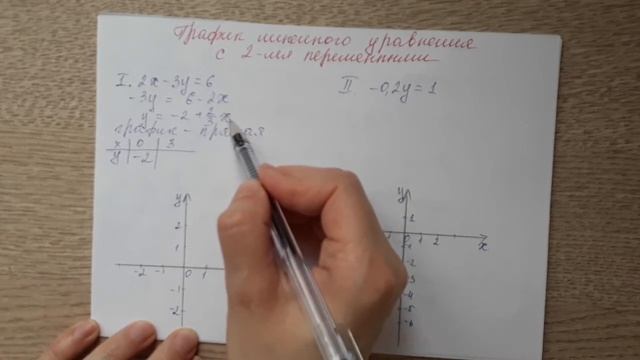 График линейного уравнения
с 2-мя переменными
I. 2x - 3y = 6
-3y = 6 - 2x
y = -2 + 2/3 x
график - прямая
x | 0 | 3
y | -2 |
II -0,2y = 1
y
2
1
-2 -1 0 1
-1
-2
y
1
0 1 2 x
-1
-2
-3
-4
-5
-6